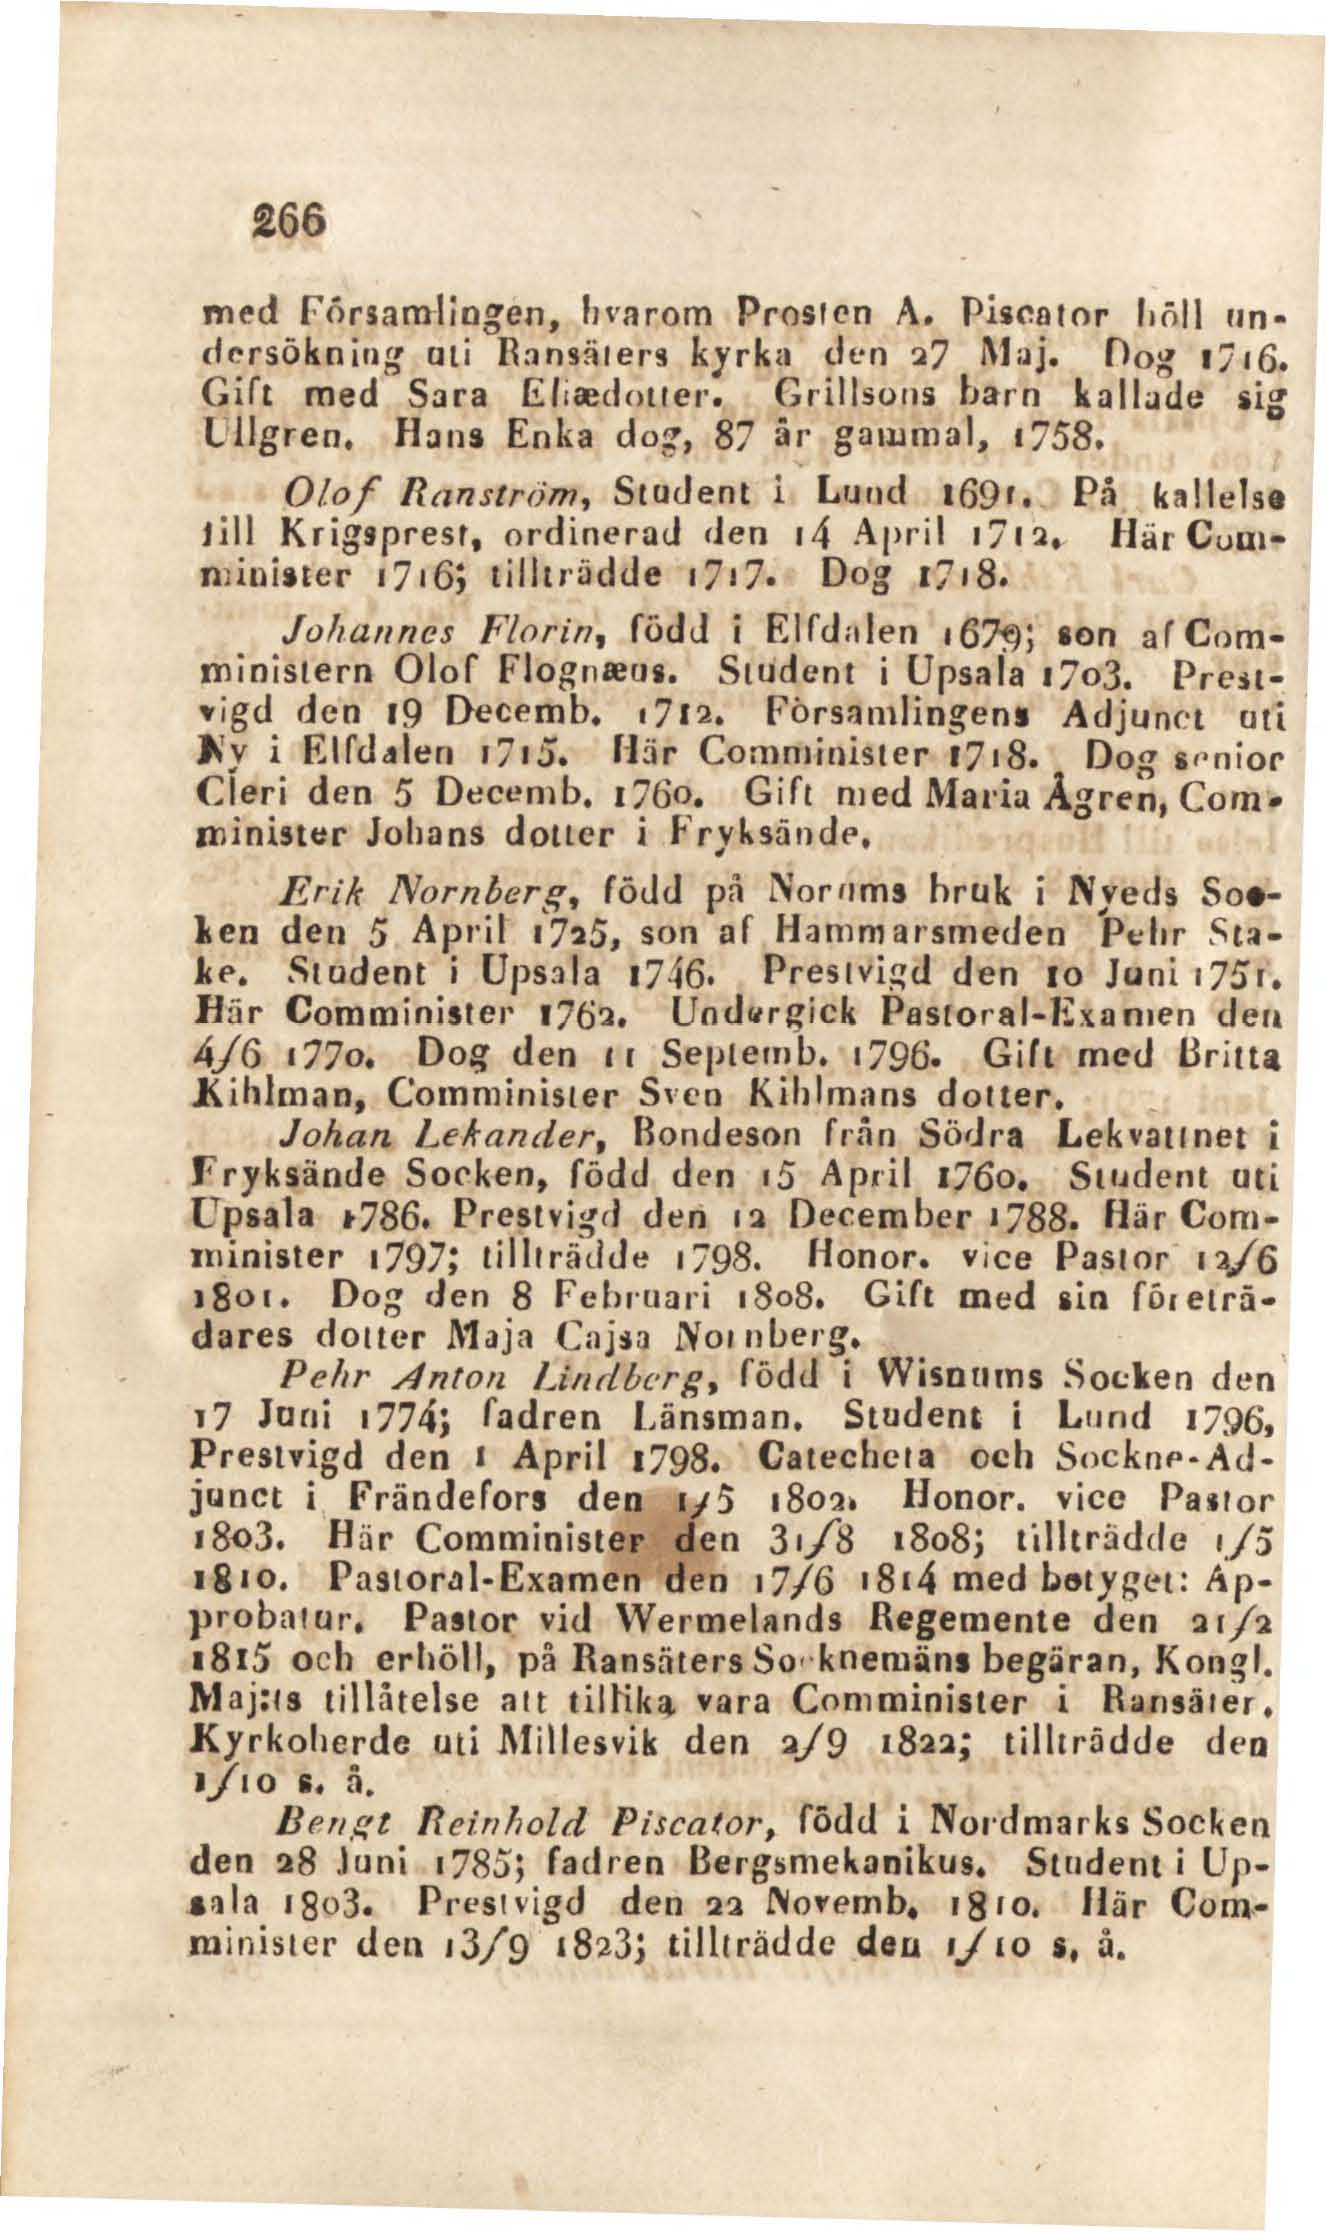 266
med Församlingen, hvarom Prosten A. Piscator höll un-
dersökning uti Ransäters kyrka den 27 Maj. Dog 1716.
Gift med Sara Eliædotter. Grillsons barn kallade sig
Ullgren. Hans Enka dog, 87 år gammal, 1758.
Olof Ranström, Student i Lund 1691. På kallelse
till Krigsprest, ordinerad den 14 April 1712. Här Com-
minister 1716; tillträdde 1717. Dog 1718.
Johannes Florin, född i Elfdalen 1679; son af Com-
ministern Olof Flognæus. Student i Upsala 1703. Prest-
vigd den 19 Decemb. 1712. Församlingens Adjunct uti
Ny i Elfdalen 1715. Här Comminister 1718. Dog senior
Cleri den 5 Decemb. 1760. Gift med Maria Ågren, Com-
minister Johans dotter i Fryksände.
Erik Nornberg, född på Norums bruk i Nyeds Soc-
ken den 5 April 1725, son af Hammarsmeden Pehr Sta-
ke. Student i Upsala 1746. Prestvigd den 10 Juni 1751.
Här Comminister 1762. Undergick Pastoral-Examen den
4/6 1770. Dog den 11 Septemb. 1796. Gift med Britta
Kihlman, Comminister Sven Kihlmans dotter.
Johan Lekander, Bondeson från Södra Lekvattnet i
Fryksände Socken, född den 15 April 1760. Student uti
Upsala 1786. Prestvigd den 12 December 1788. Här Com-
minister 1797; tillträdde 1798. Honor. vice Pastor 12/6
1801. Dog den 8 Februari 1808. Gift med sin företrä-
dares dotter Maja Cajsa Nornberg.
Pehr Anton Lindberg, född i Wisnums Socken den
17 Juni 1774; fadren Länsman. Student i Lund 1796,
Prestvigd den 1 April 1798. Catecheta och Sockne-Ad-
junct i Frändefors den 1/5 1802. Honor. vice Pastor
1803. Här Comminister den 31/8 1808; tillträdde 1/5
1810. Pastoral-Examen den 17/6 1814 med betyget: Ap-
probatur. Pastor vid Wermelands Regemente den 21/2
1815 och erhöll, på Ransäters Socknemäns begäran, Kongl.
Maj:ts tillåtelse att tillika vara Comminister i Ransäter.
Kyrkoherde uti Millesvik den 2/9 1822; tillträdde den
1/10 s. å.
Bengt Reinhold Piscator, född i Nordmarks Socken
den 28 Juni 1785; fadren Bergsmekanikus. Student i Up-
sala 1803. Prestvigd den 22 Novemb. 1810. Här Com-
minister den 13/9 1823; tillträdde den 1/10 s. å.